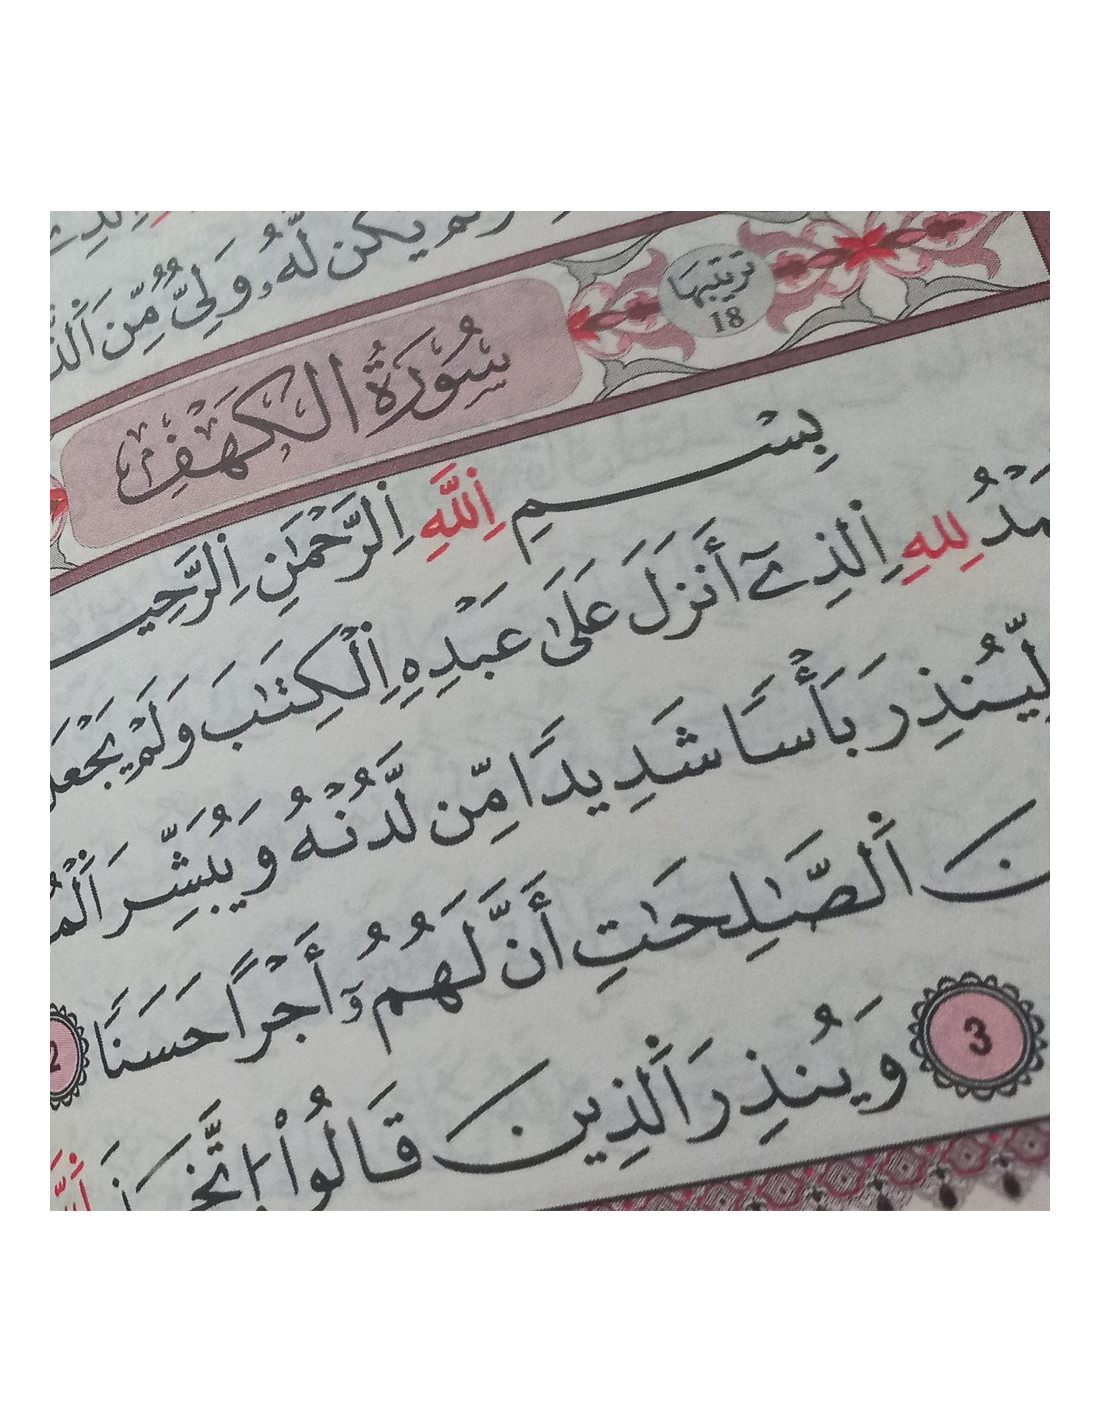 وَلَمْ يَكُن لَّهُۥ وَلِيٌّ مِّنَ اَلذُّ
سُورَةُ الكَهْفِ
تَرْتِيبُهَا
18
بِسْمِ اِللَّهِ اِلرَّحْمَٰنِ اِلرَّحِيـ
ـمْدُ لِلهِ اِلذِے أَنزَلَ عَلَىٰ عَبْدِهِ اِلْكِتَٰبَ وَلَمْ يَجْعَل
لِّيُنذِرَ بَأْسًا شَدِيدًا مِّن لَّدُنْهُ وَيُبَشِّرَ اَلْمُ
ـنَ اَلصَّٰلِحَٰتِ أَنَّ لَهُمُۥٓ أَجْرًا حَسَنًا 2
3 وَيُنذِرَ اَلذِينَ قَالُواْ اُتَّخَذَ اَللَّهُ